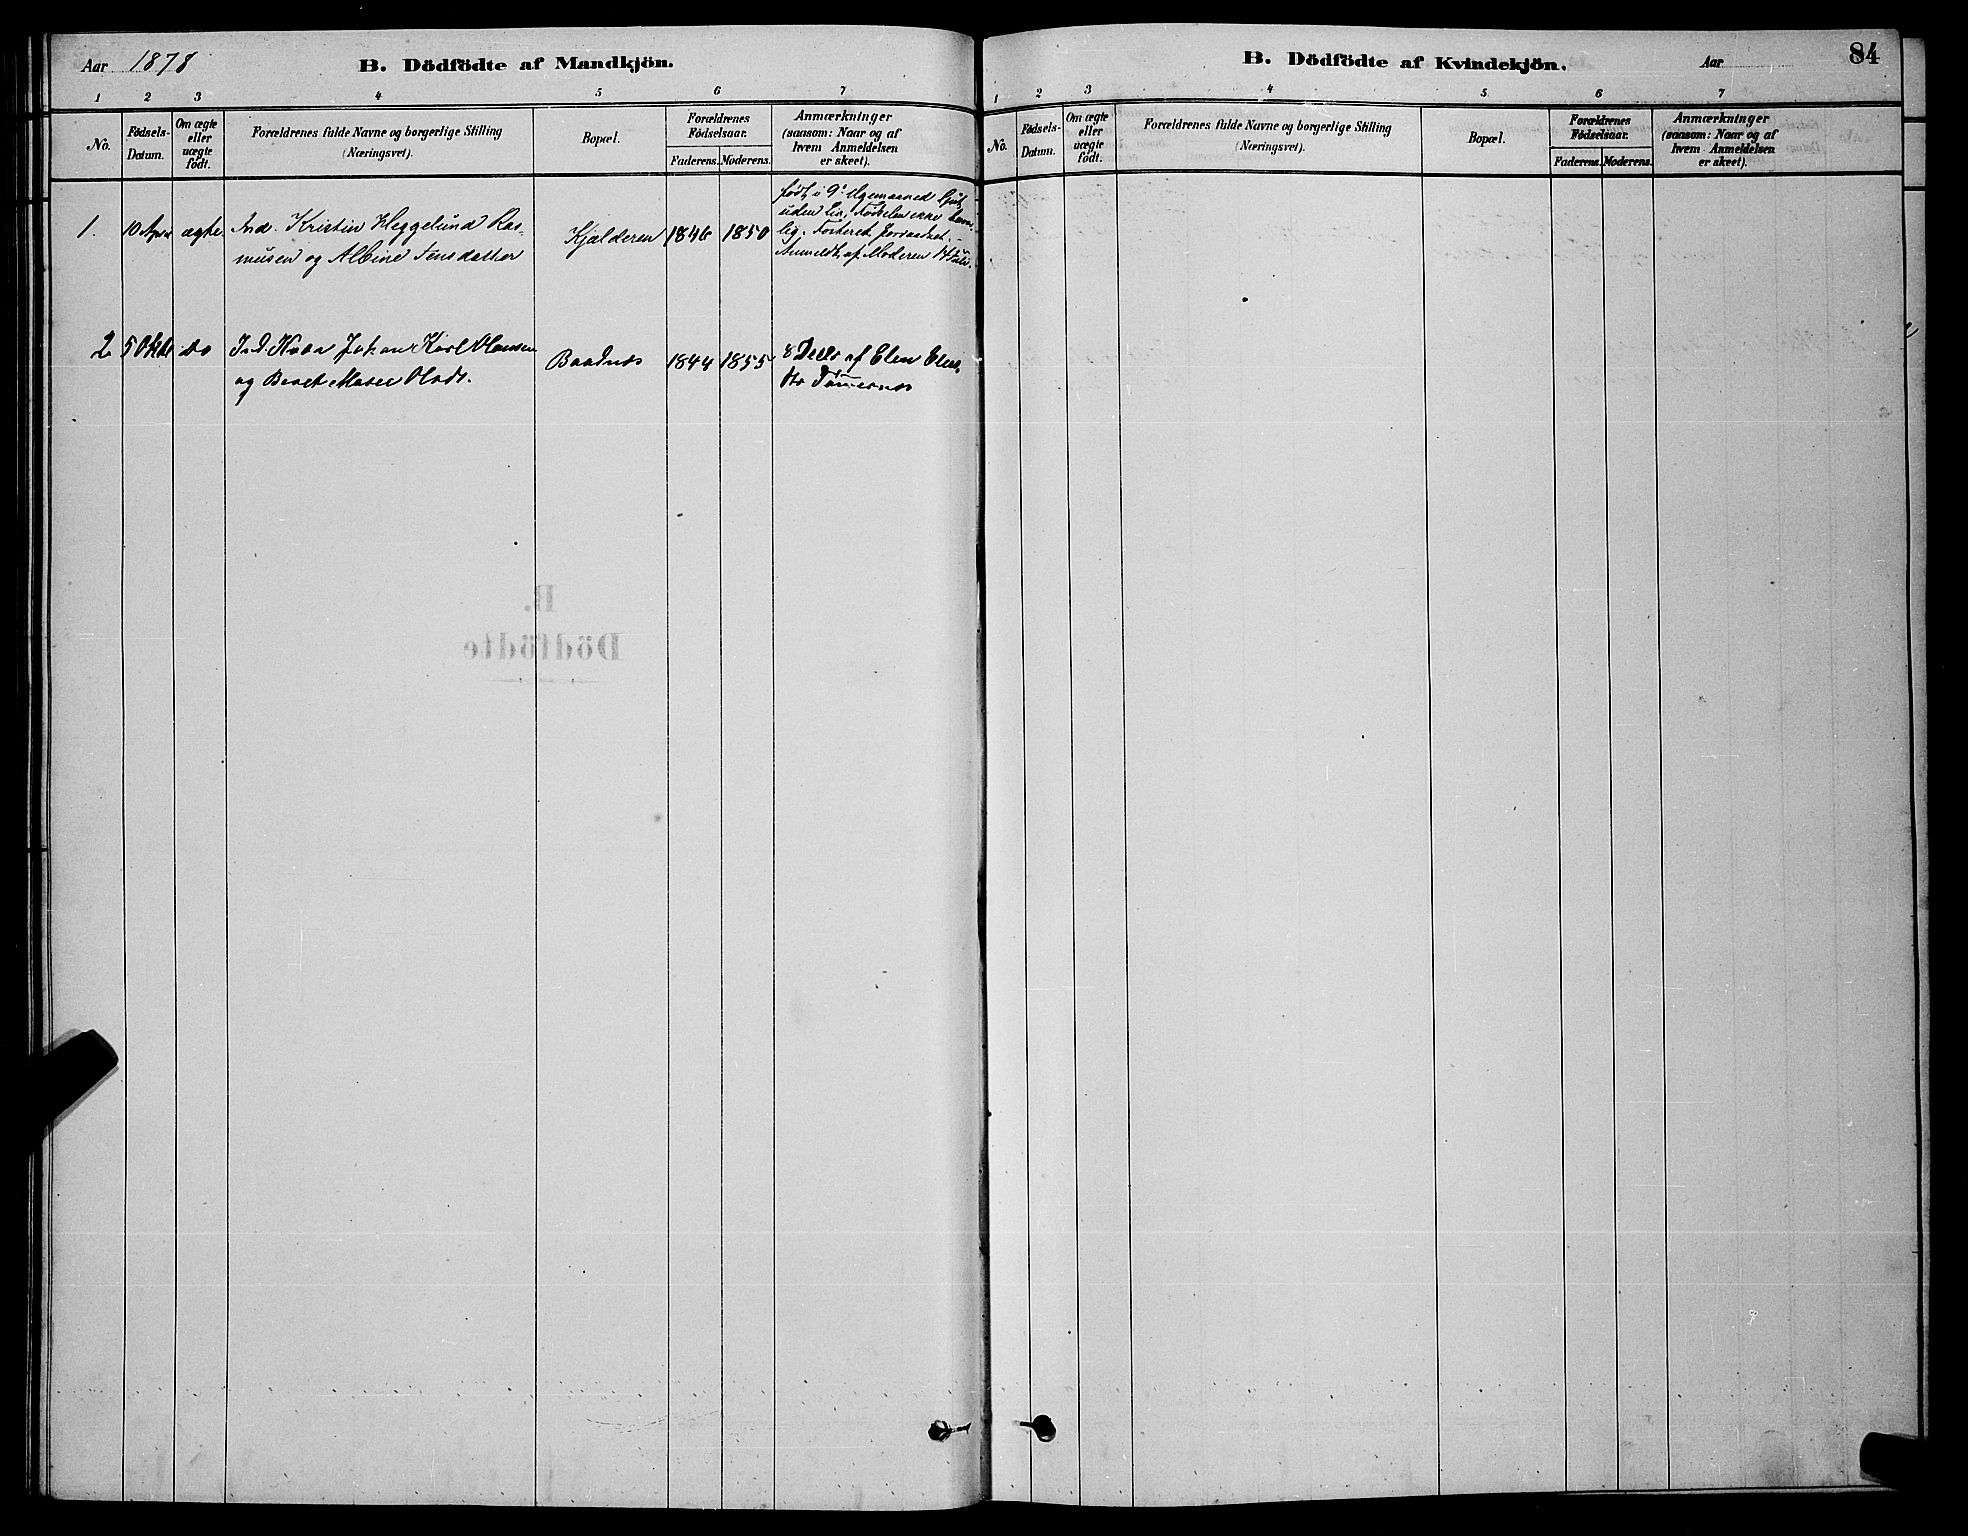 Aar 1878
B. Dödfödte af Mandkjön.
1 2 3 4 5 6 7
No.
Födsels-
Datum.
Om ægte
eller
uægte
födt.
Forældrenes fulde Navne og borgerlige Stilling
(Næringsvei).
Bopæl.
Forældrenes
Födselsaar.
Faderens. Moderens.
Anmærkninger
(saasom: Naar og af
hvem Anmeldelsen
er skeet).
1. 10 Apr ægte Ind. Kristin Heggelund Ras-
musen og Albine Jensdatter
Kjælderen 1846 1850
født i 9de
uden Liv. Fødselen ikke
lig. Fosteret
Anmeldt af Moderen 14 Juli.
2 5 Okt do Ind. Johan Karl Hansen
og Beret Olsdt.
Baadnes 1844 1855
8 Decbr af Elen
B.
Dödfödte
B. Dödfödte af Kvindekjön.
Aar
84
1 2 3 4 5 6 7
No.
Födsels-
Datum.
Om ægte
eller
uægte
födt.
Forældrenes fulde Navne og borgerlige Stilling
(Næringsvei).
Bopæl.
Forældrenes
Födselsaar.
Faderens. Moderens.
Anmærkninger
(saasom: Naar og af
hvem Anmeldelsen
er skeet).